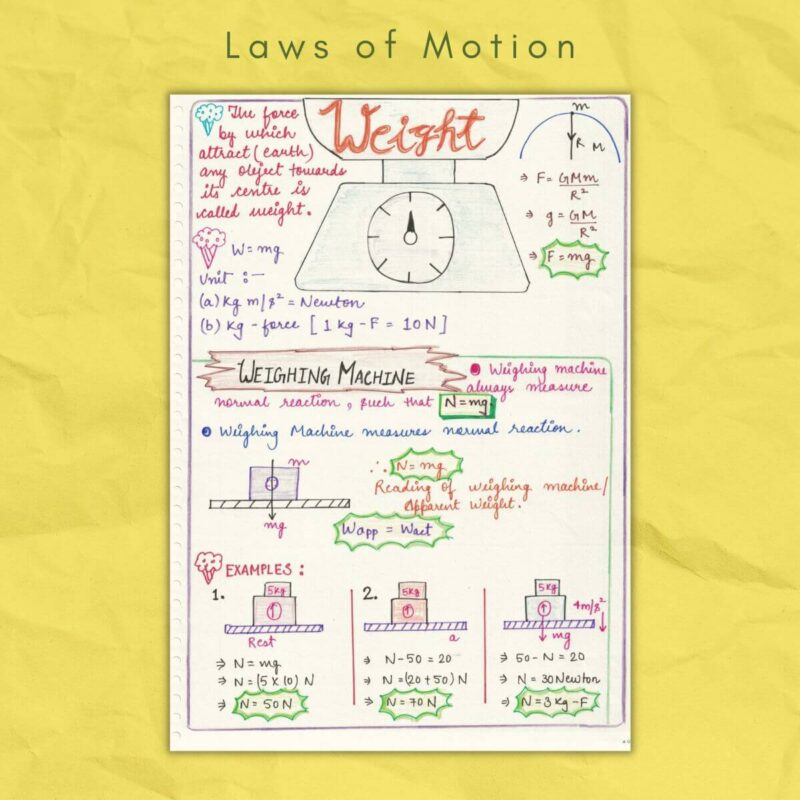 Laws of Motion
Weight
The force
by which
attract (earth)
any object towards
its centre is
called weight.
W = mg
Unit :-
(a) kg m/s² = Newton
(b) kg - force [1 kg-F = 10N]
m
R M
⇒ F = GMm/R²
⇒ g = GM/R²
⇒ F = mg
WEIGHING MACHINE
Weighing machine
always measure
normal reaction, such that N = mg.
Weighing Machine measures normal reaction.
m
mg
∴ N = mg
Reading of weighing machine/
Apparent Weight.
Wapp = Wact
EXAMPLES :
1.
5kg
Rest
⇒ N = mg
⇒ N = (5 X 10) N
⇒ N = 50N
2.
5kg
a
⇒ N - 50 = 20
⇒ N = (20 + 50) N
⇒ N = 70 N
5kg
4m/s²
mg
⇒ 50 - N = 20
⇒ N = 30 Newton
⇒ N = 3 kg-F